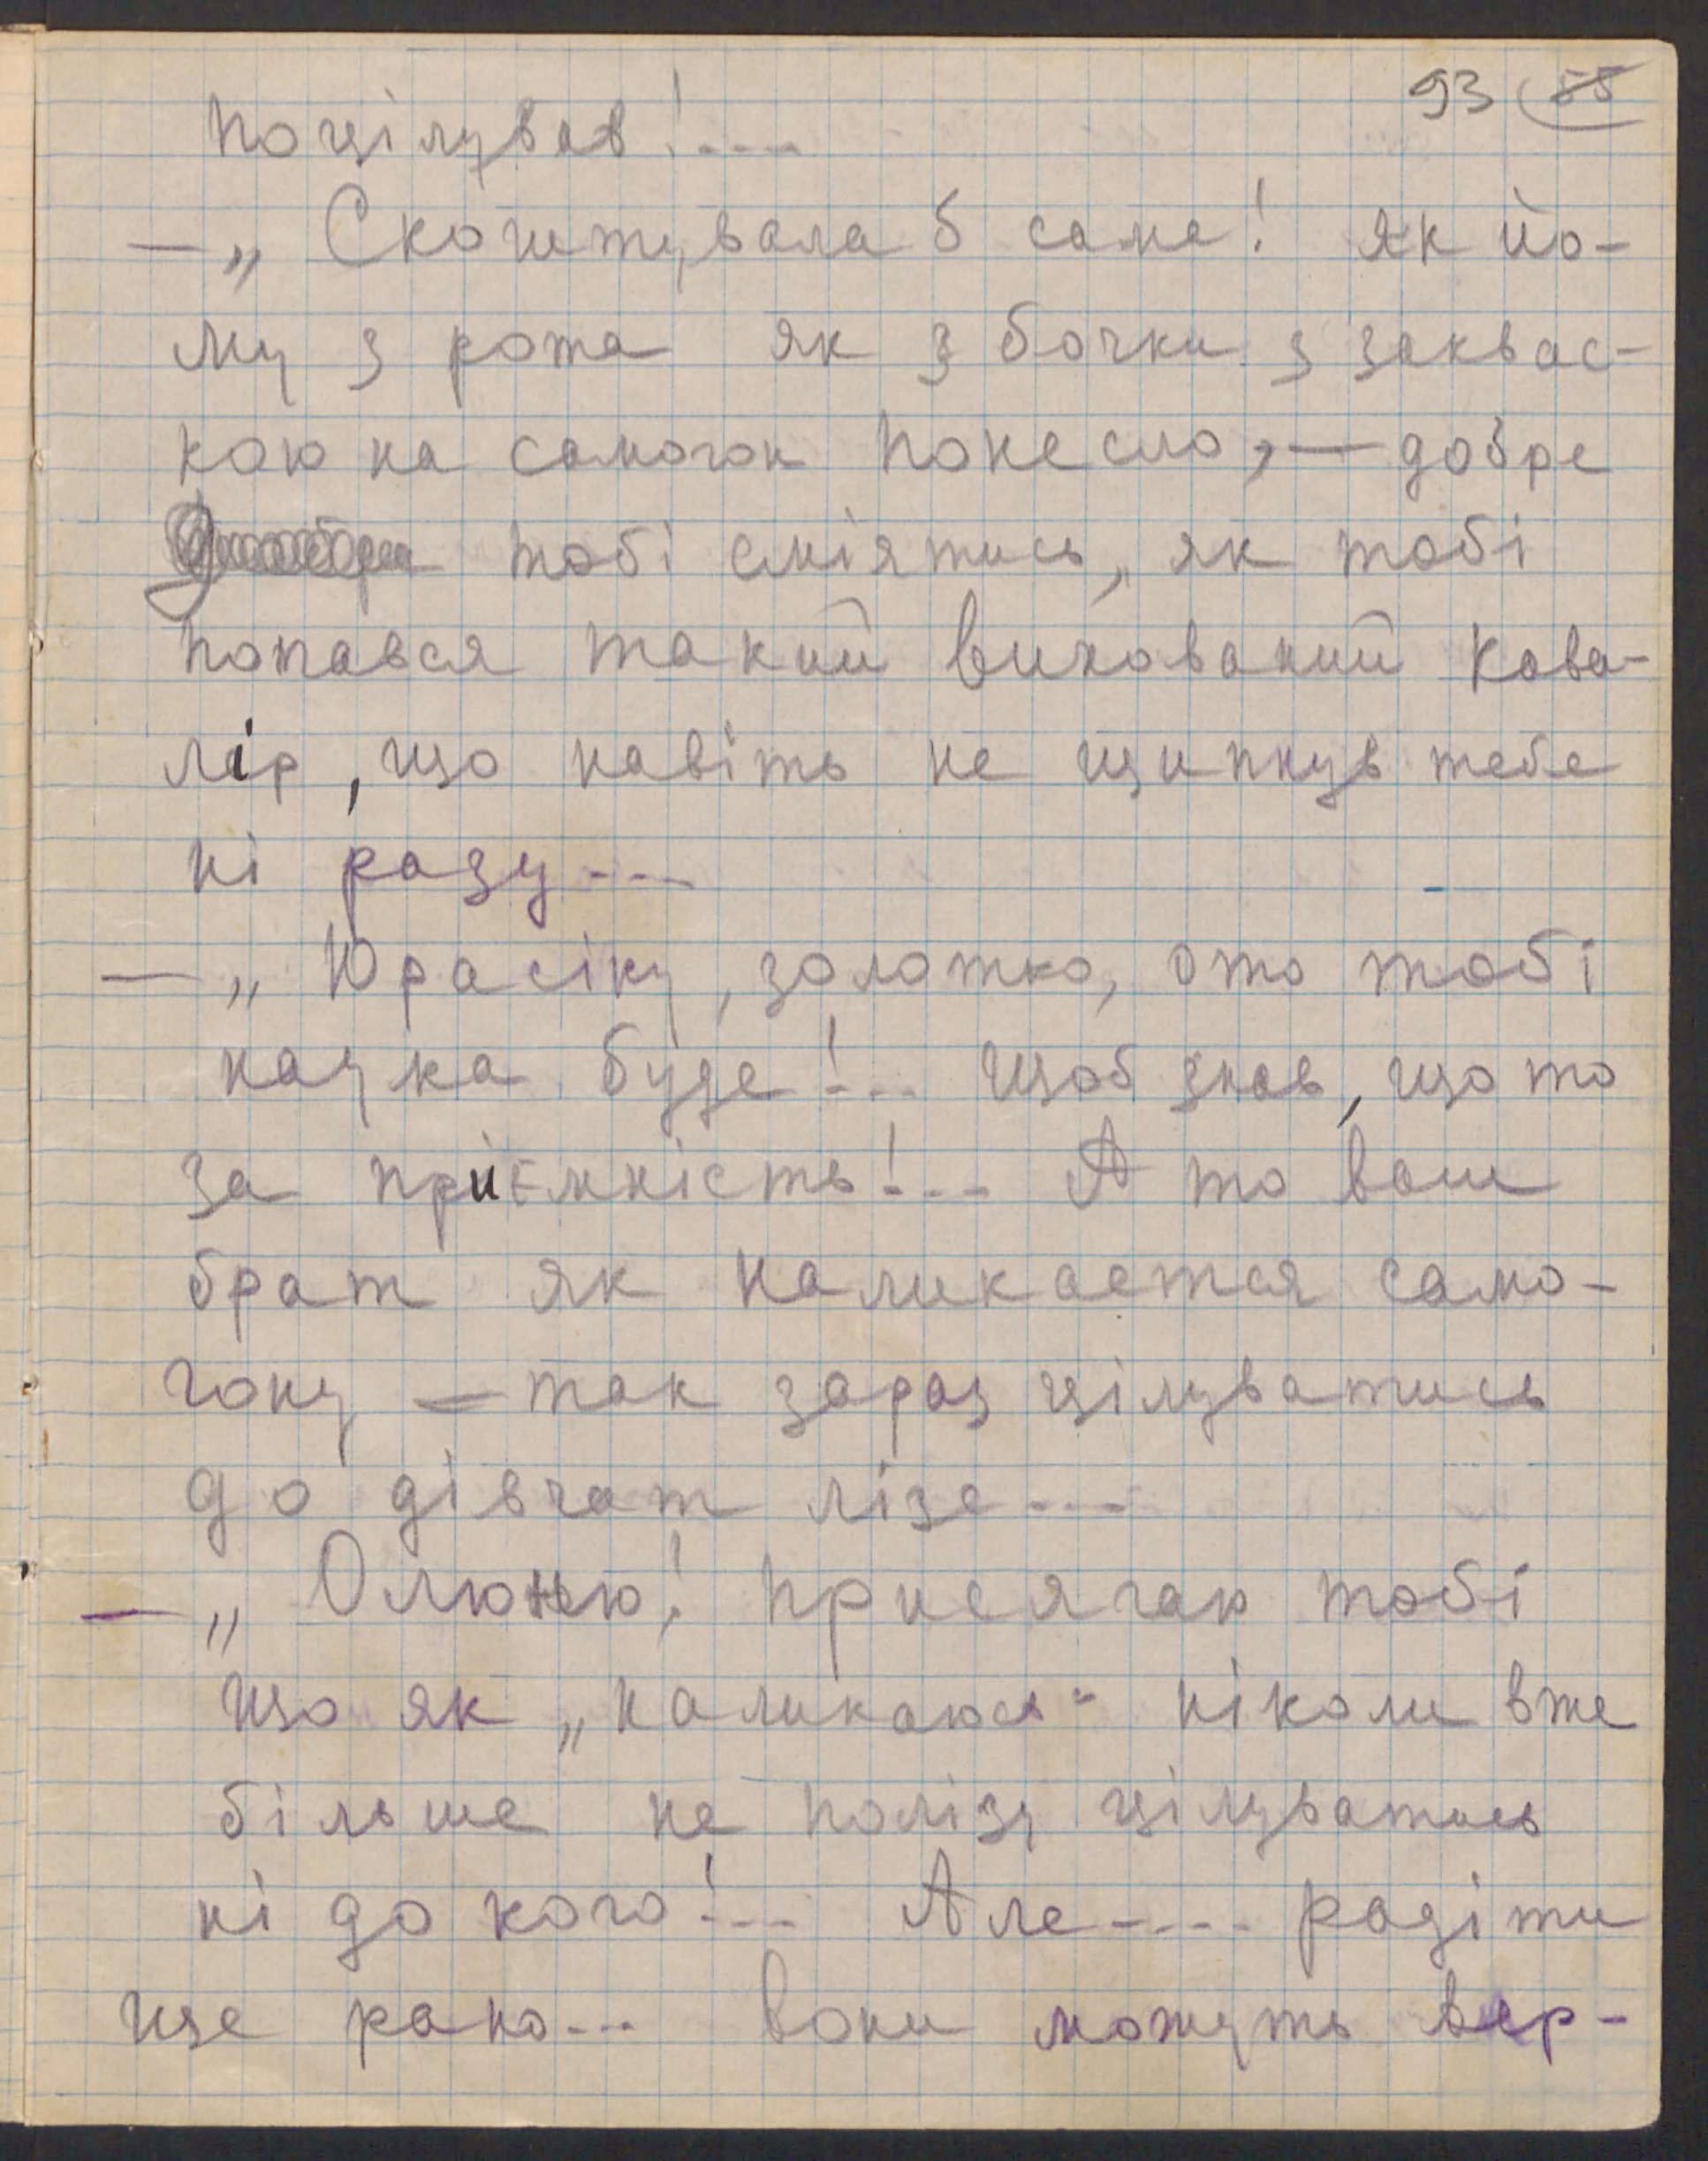 93 55
поцілував!....
— „Скоштувала б сама! Як йо-
му з рота як з бочки з заквас-
кою на самогон понесло, — добре
тобі сміятись, як тобі
попався такий вихований кава-
лір, що навіть не щипнув тебе
ні разу...
— „Юрасіку, золотко, ото тобі
наука буде!... Щоб знав, що то
за приємність!... А то ваш
брат як налигається само-
гону — так зараз цілуватись
до дівчат лізе...
— „Олюнью! присягаю тобі
що як „налигаюсь“ ніколи вже
більше не полізу цілуватись
ні до кого!... Але.... радіти
ще рано... вони можуть вер-